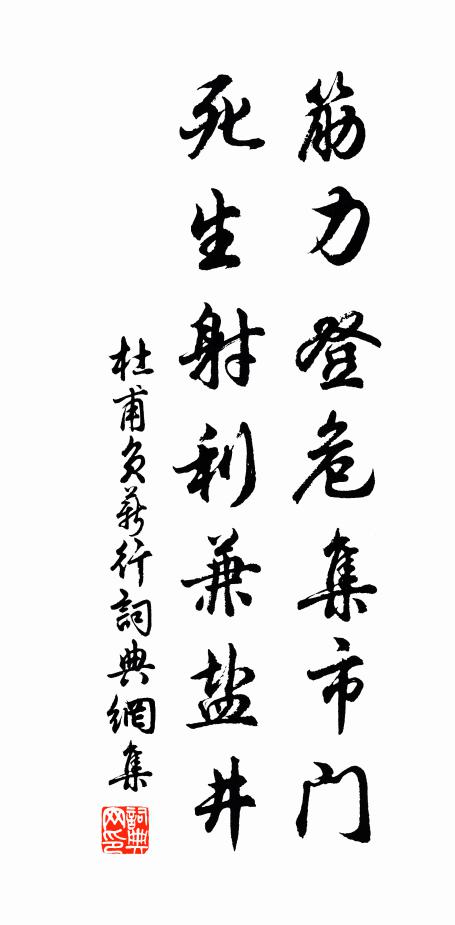 筋力登危集市門
死生射利兼盐井
杜甫负薪行詞典網集
詞典网印